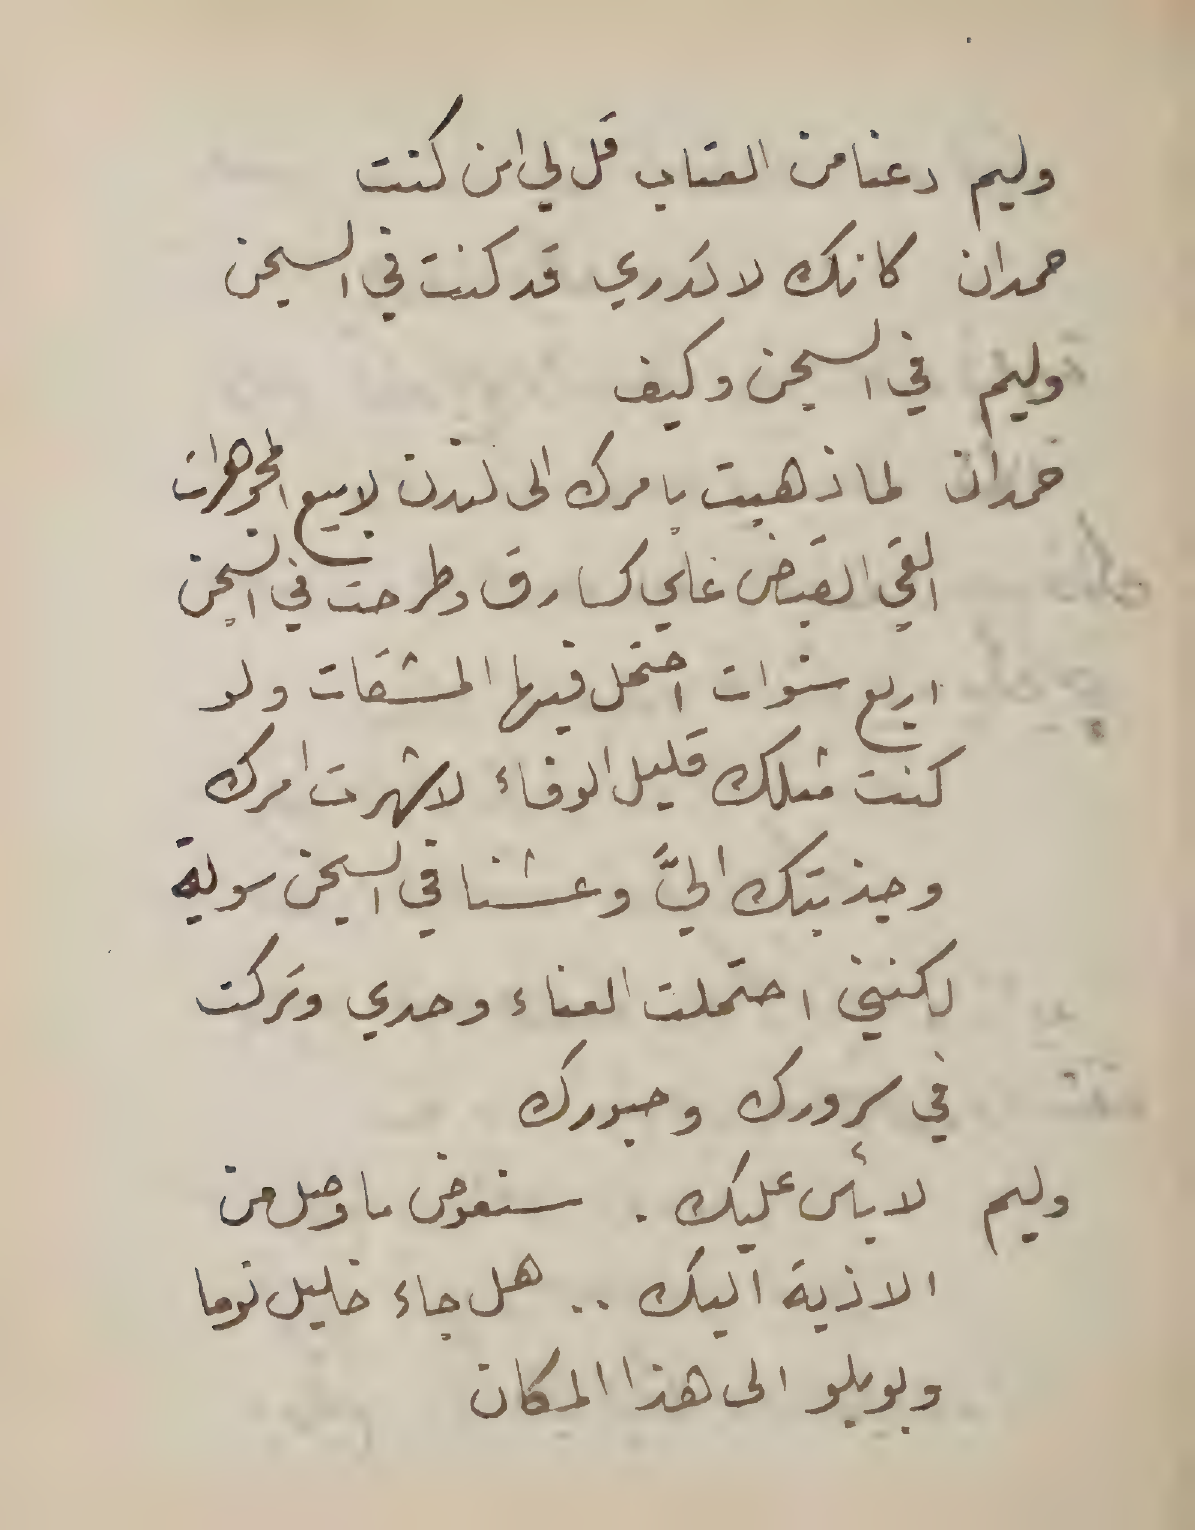 وليم دعنا من العتاب قل لي اين كنت
حمدان كانك لا تدري قد كنت في السجن
وليم في السجن وكيف
حمدان لما ذهبت بامرك الى لندن لابيع المجوهرات
القي القبض علي كسارق وطرحت في السجن
اربع سنوات احتمل فيها المشقات ولو
كنت مثلك قليل الوفاء لاشهرت امرك
وجذبتك اليَّ وعشنا في السجن سوية
لكنني احتملت العناء وحدي وتركت
في سرورك وحبورك
وليم لا بأس عليك . سنعوض ما وصل من
الاذية اليك .. هل جاء خليل توما
الى هذا المكان